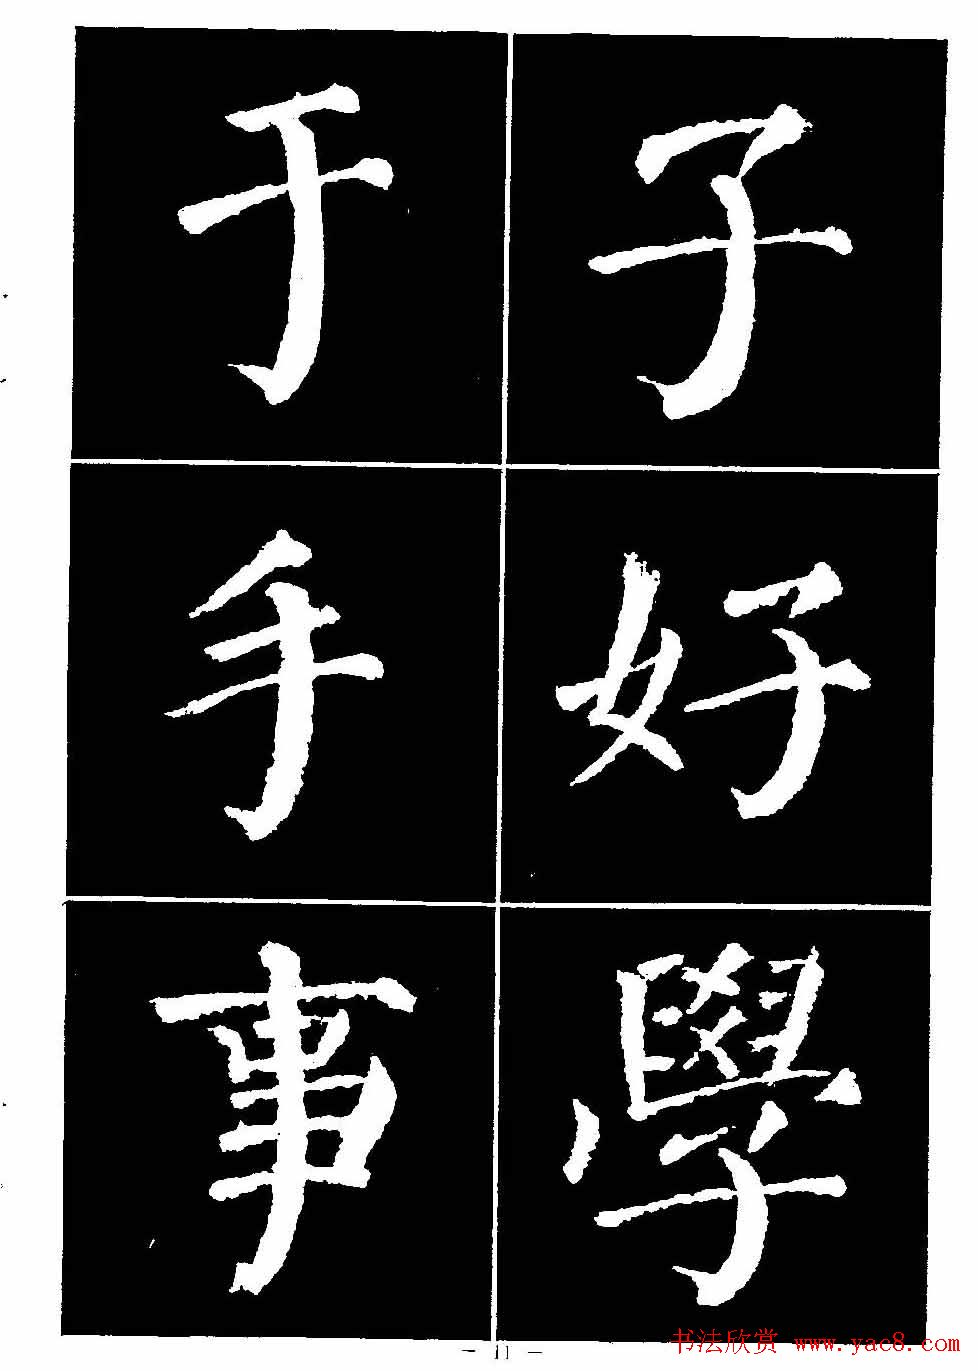 子
好
學
于
手
事
— 11 —
书法欣赏 www.yac8.com